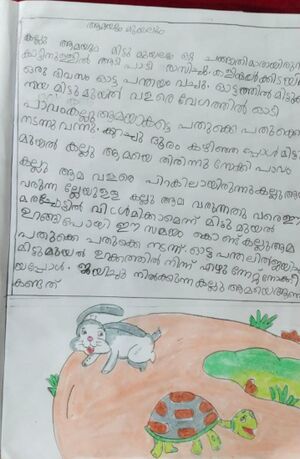 ആമയും മുയലും
കല്ലു ആമയും മിട്ടു മുയലും ഒറ്റ ചങ്ങാതിമാരായിരുന്നു
കാട്ടിനുള്ളിൽ ആടി പാടി രസിച്ചും കളികൾക്കിടയിൽ
ഒരു ദിവസം ഓട്ട പന്തയം വച്ചും. ഓട്ടത്തിൽ മിട്ടു
മിട്ടു മുയൽ വളരെ വേഗത്തിൽ ഓടി
പാവം കല്ലു ആമയാകട്ടെ പതുക്കെ പതുക്കെ
നടന്നു വന്നും. കുറച്ചു ദൂരം കഴിഞ്ഞപ്പോൾ മിട്ടു
മുയൽ കല്ലു ആമയെ തിരിഞ്ഞു നോക്കി പാവം
കല്ലു ആമ വളരെ പിറകിലായിരുന്നു കല്ലു ആമ
വരുന്ന ല്ലേയുള്ള കല്ലു ആമ വരുന്നതു വരെ ഈ
മരച്ചോട്ടിൽ വിശ്രമിക്കാമെന്ന് മിട്ടു മുയൽ
ഉറങ്ങിപോയി ഈ സമയം കൊണ്ട് കല്ലു ആമ
പതുക്കെ പതുക്കെ നടന്ന് ഓട്ട പന്തലിൽ ജയിച്ചു
മിട്ടു മുയൽ ഉറക്കത്തിൽ നിന്ന് എഴുന്നേറ്റു നോക്കി
യപ്പോൾ. ജയിച്ചു നിൽക്കുന്ന കല്ലു ആമയെ ആണ്
കണ്ടത്